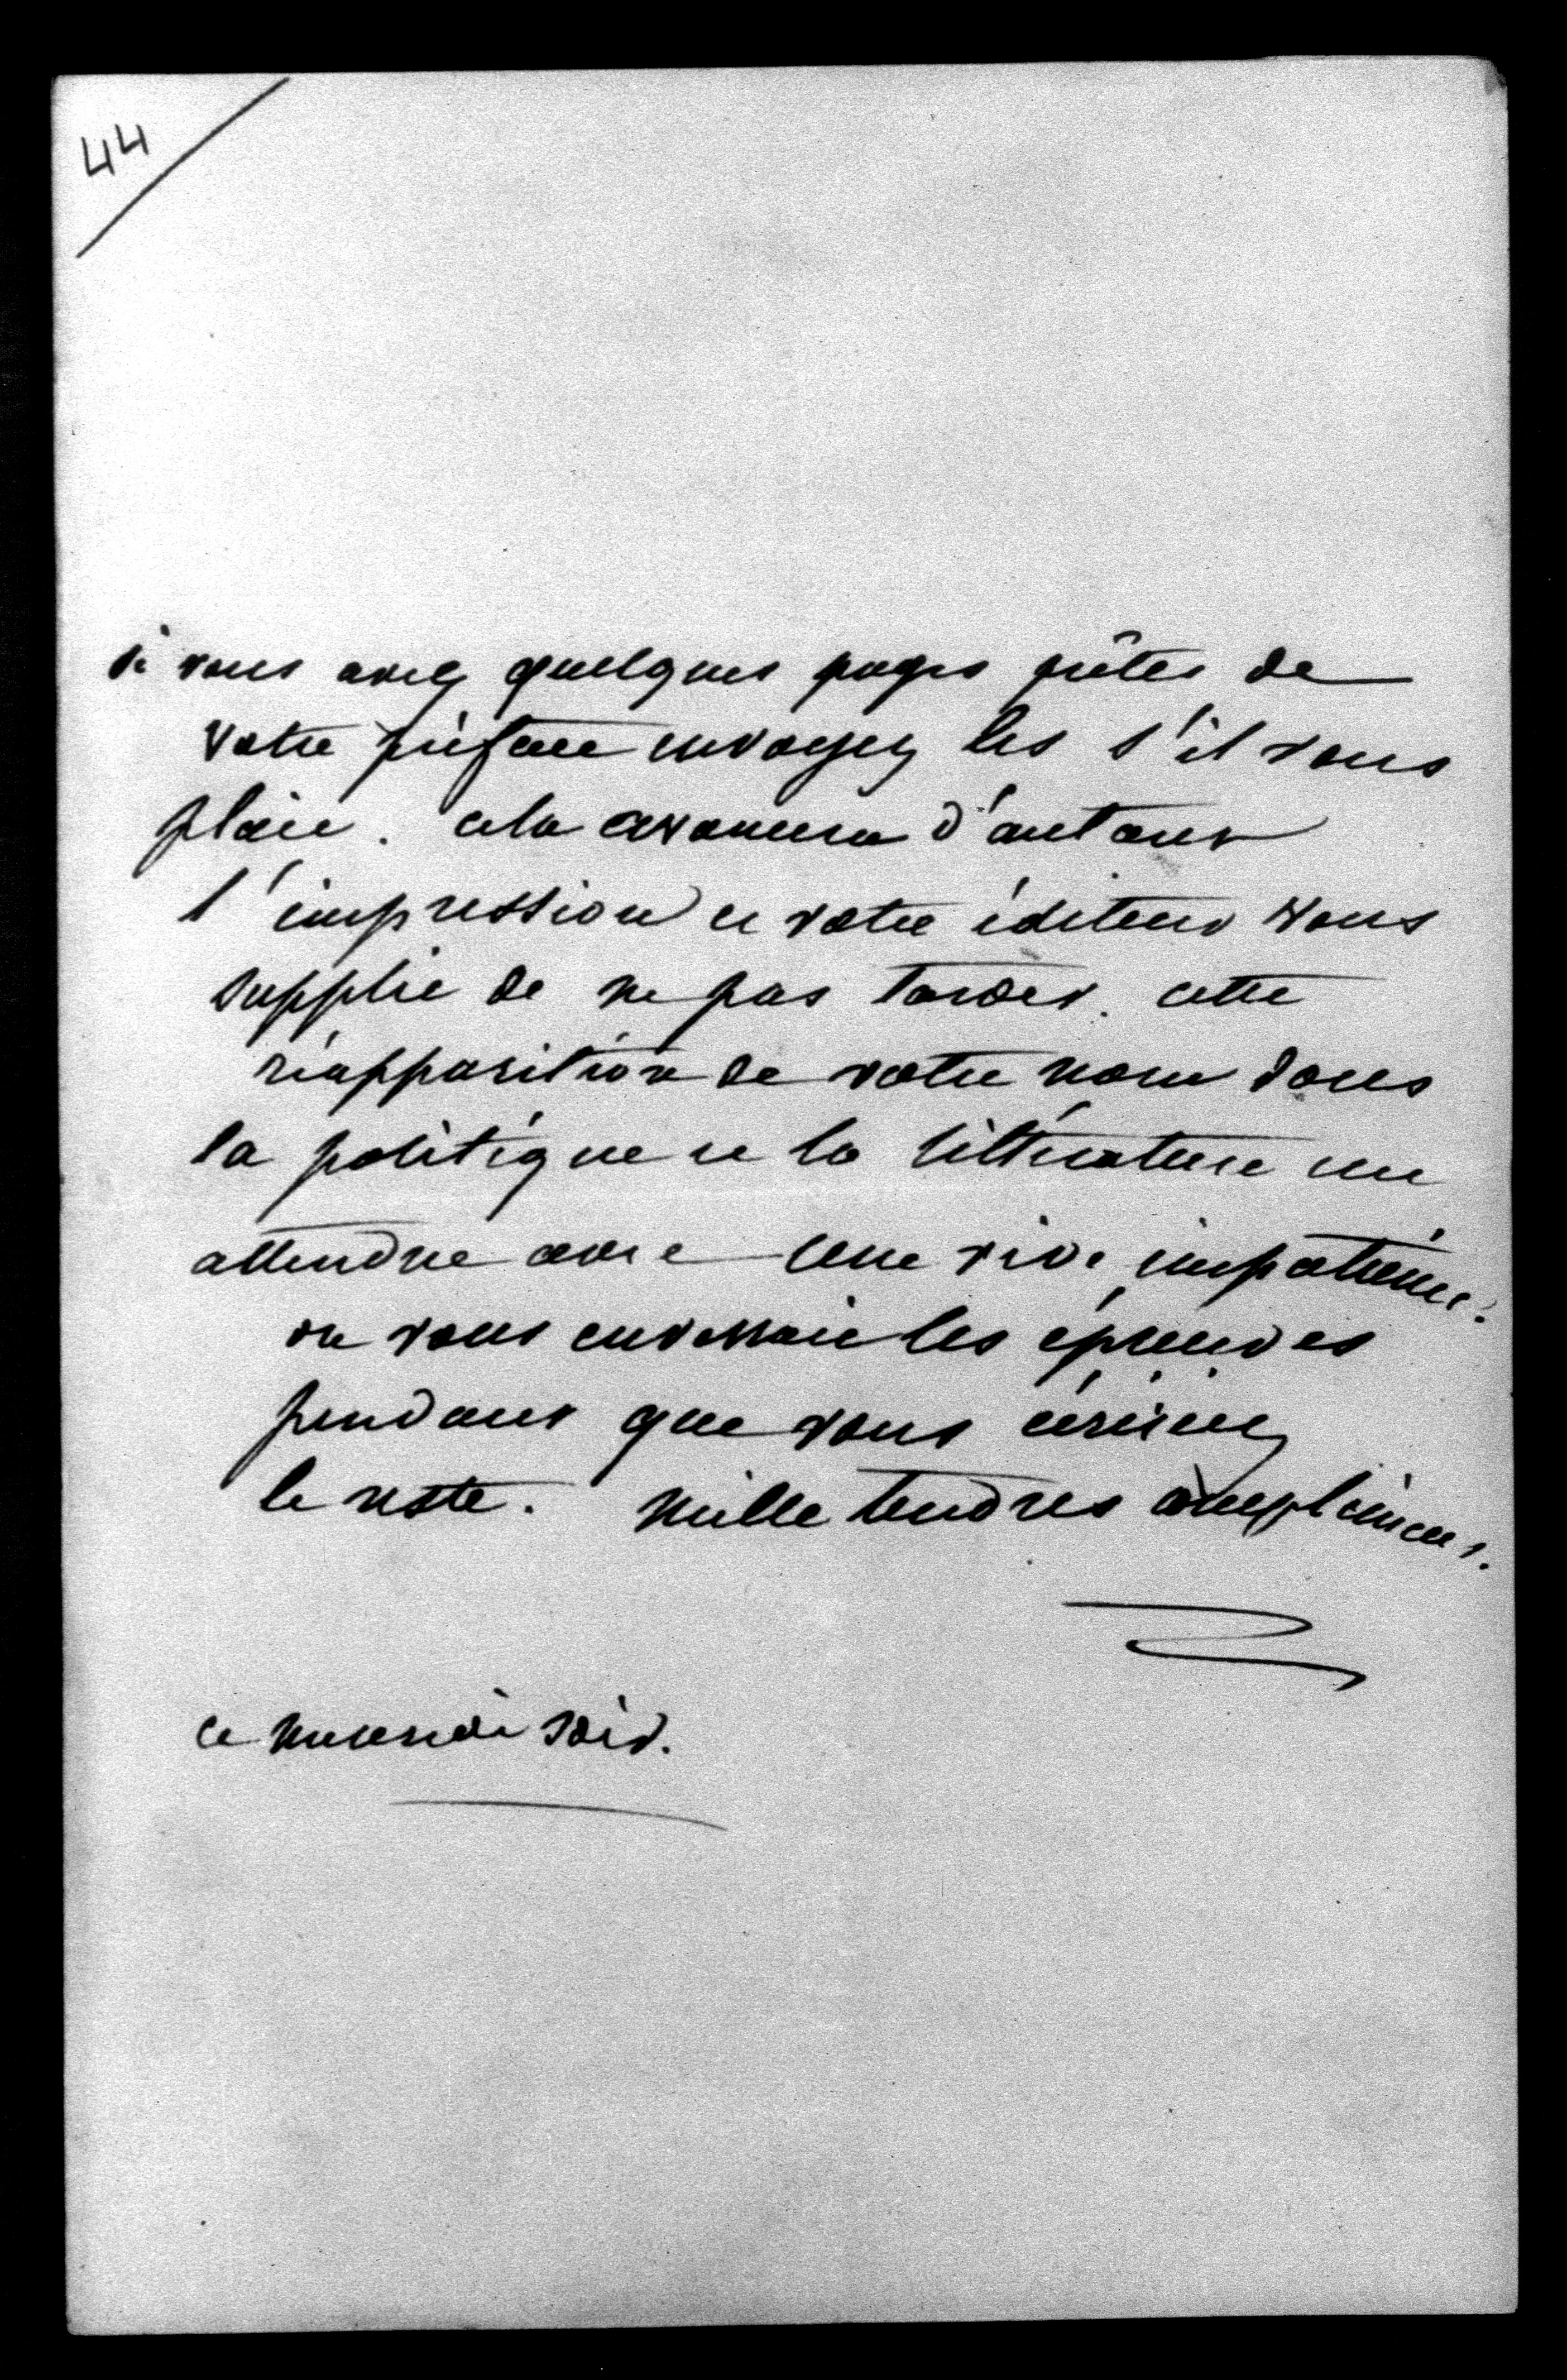 44
si vous avez quelques pages prêtes de
votre préface envoyez les s'il vous
plait. cela avancera d'autant
l'impression et votre éditeur vous
supplie de ne pas tarder. cette
réapparition de votre nom dans
la politique et la littérature est
attendue avec une vive impatience.
on vous enverrait les épreuves
pendant que vous écririez
le reste. mille tendres complimens.
ce mercredi soir.